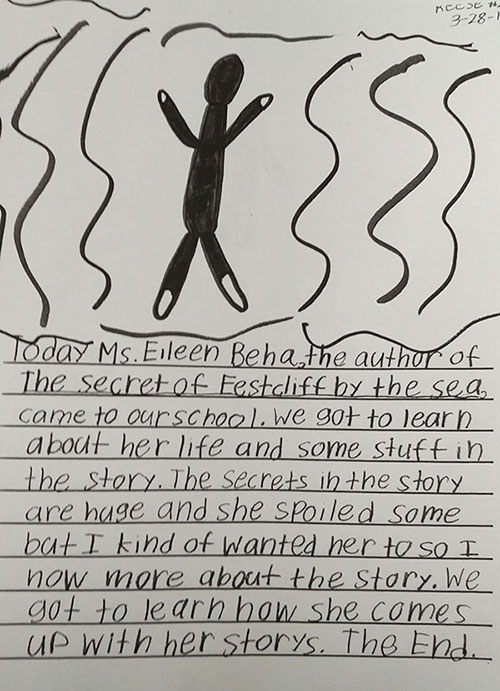 3-28-1
Today Ms. Eileen Beha, the author of
The secret of Eestcliff by the sea,
came to our school. We got to learn
about her life and some stuff in
the story. The secrets in the story
are huge and she spoiled some
but I kind of wanted her to so I
now more about the story. We
got to learn how she comes
up with her storys. The End.